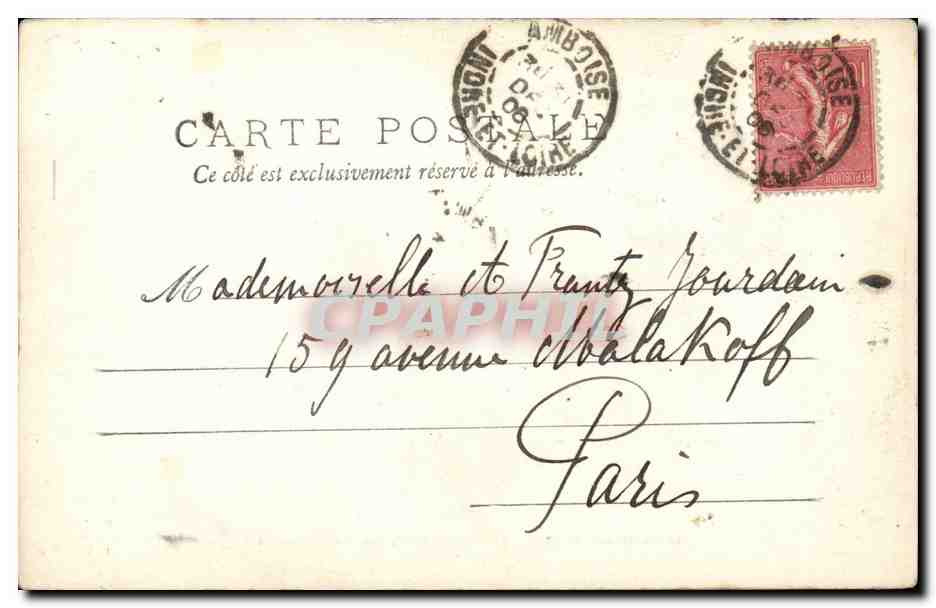 AMBOISE
INDRE-ET-LOIRE
06
AMBOISE
INDRE-ET-LOIRE
06
CARTE POSTALE
Ce côté est exclusivement réservé à l'adresse.
Mademoiselle et Frantz Jourdain
CPAPHIL
159 avenue Malakoff
Paris